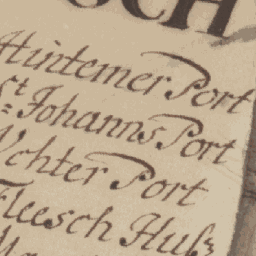 OCH
Hintemer Port
St Johanns Port
Port
Fleesch Huß